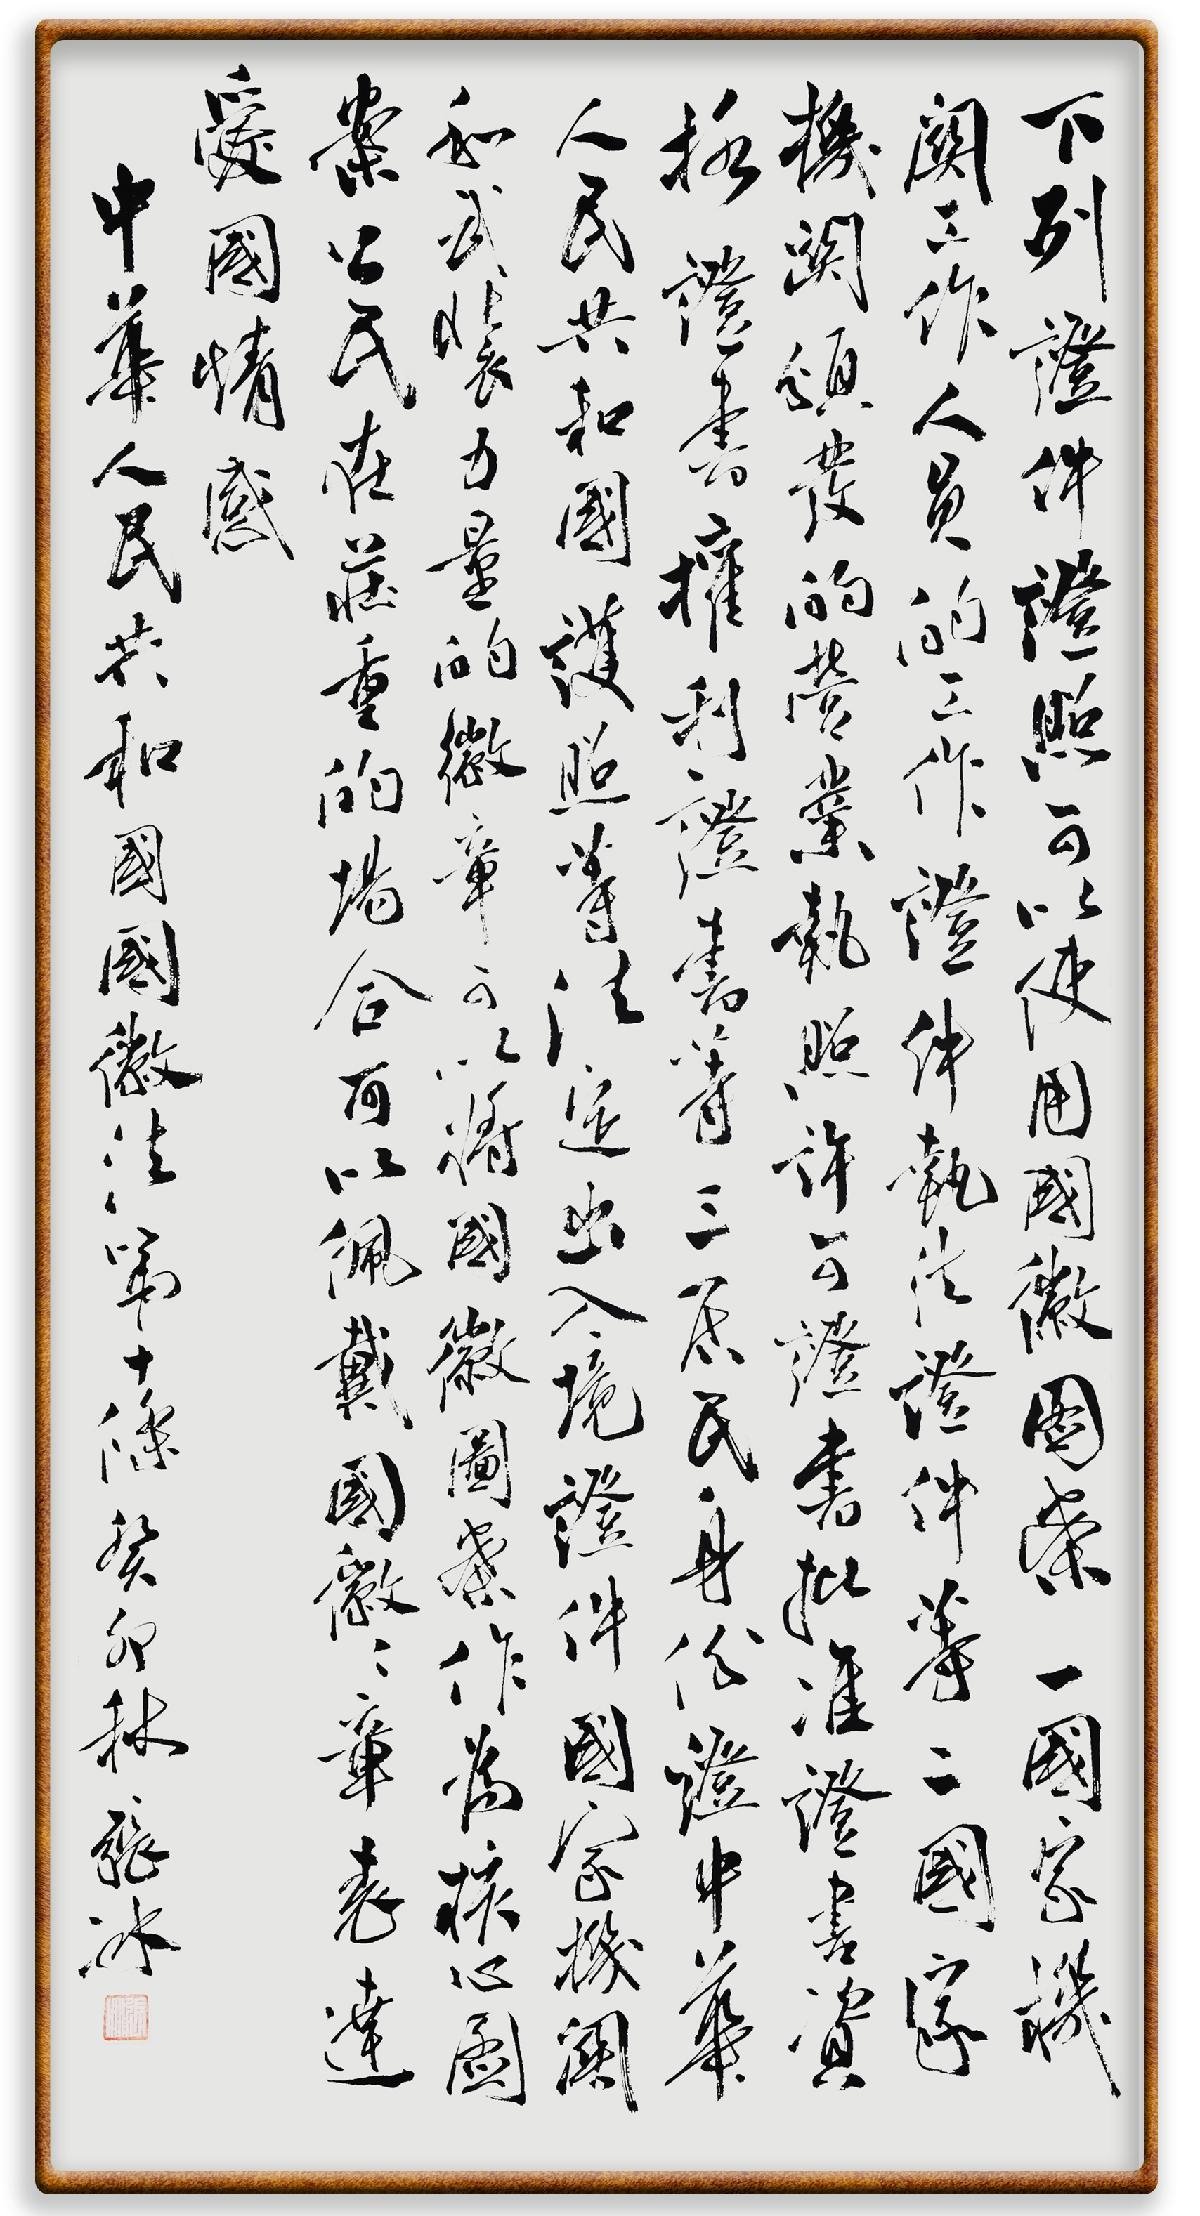 下列證件證照可以使用國徽圖案一國家機
關工作人員的工作證件執法證件等二國家
機關頒發的營業執照許可證書批准證書資
格證書權利證書等三居民身份證中華
人民共和國護照等法定出入境證件國家機關
和武裝力量的徽章可以將國徽圖案作為核心圖
案公民在莊重的場合可以佩戴國徽〻章表達
愛國情感
中華人民共和國國徽法第十條癸卯秋張冰